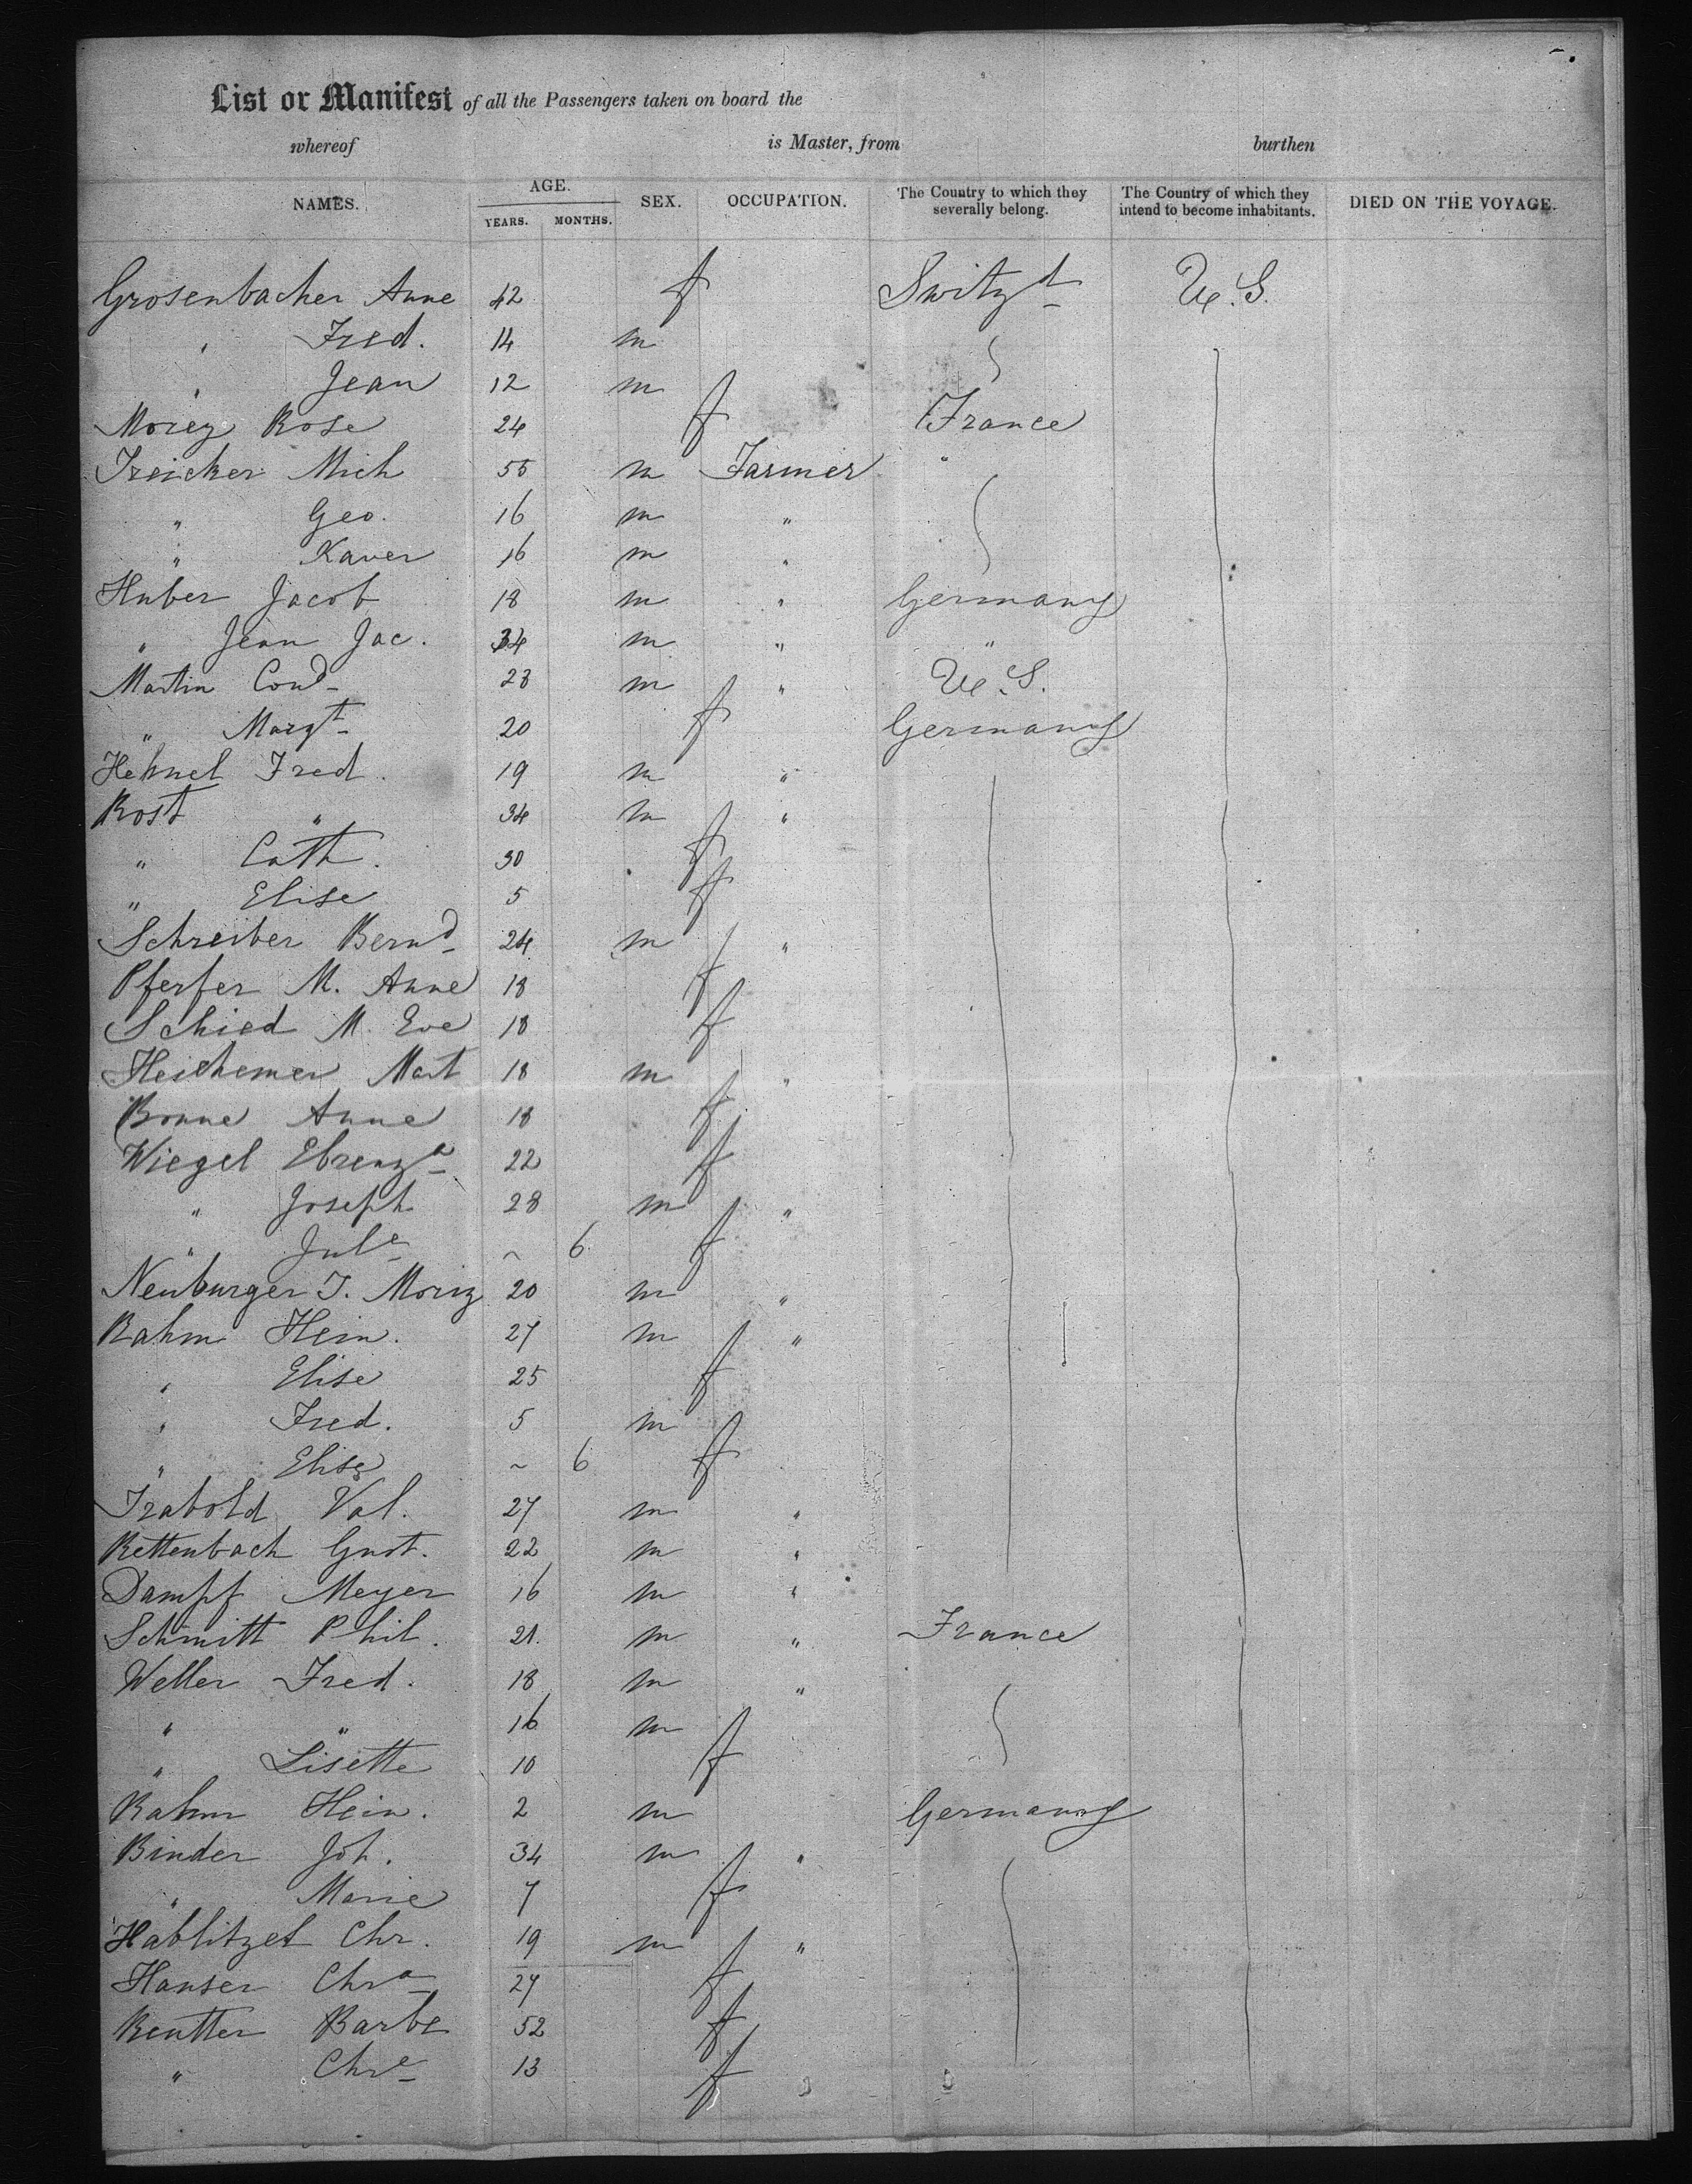 List or Manifest of all the Passengers taken on board the
whereof is Master, from burthen
NAMES. AGE. YEARS. MONTHS. SEX. OCCUPATION. The Country to which they severally belong. The Country of which they intend to become inhabitants. DIED ON THE VOYAGE.
Grosenbacher Anne 42 f Switzd U.S.
" Fred. 14 m
" Jean 12 m
Morez Rose 24 f France
Treicker Mich 55 m Farmer "
" Geo. 16 m "
" Xaver 16 m "
Huber Jacob 18 m " Germany
" Jean Jac. 34 m " "
Martin Cond 28 m " U.S.
" Margt 20 f Germany
Hehnel Fred. 19 m "
Rost " 34 m "
" Cath. 30 f
" Elise 5 f
Schreiber Bernd 24 m "
Pferfer M. Anne 18 f
Schied M. Eve 18 f
Heichemer Mart 18 m "
Bonne Anne 18 f
Wiegel 22 f
" Joseph 28 m "
" Jule ~ 6 f
Neuburger J. Moriz 20 m "
Rahm Hein. 27 m "
" Elise 25 f
" Fred. 5 m
" Elise ~ 6 f
Trabold Val. 27 m "
Rettenbach Gust. 22 m "
Dampf Meyer 16 m "
Schmitt Phil. 21. m " France
Weller Fred. 18 m "
" " 16 m
" Lisette 10 f
Rahm Hein. 2 m Germany
Binder Joh. 34 m "
" Marie 7 f
Hablitzel Chr. 19 m "
Hanser Chra 27 f
Reutter Barbe 52 f
" Chre 13 f